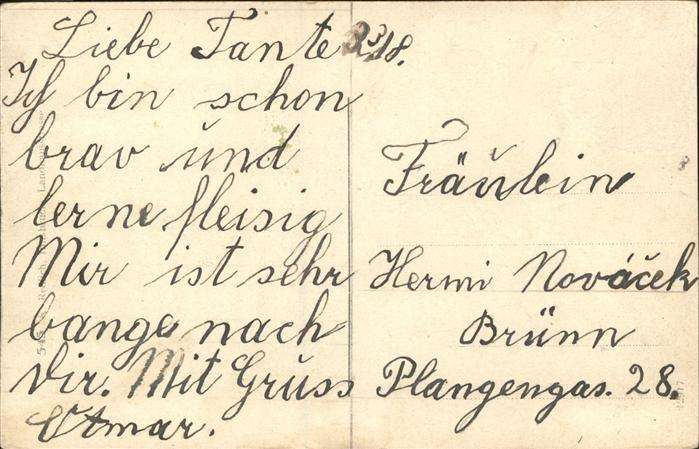 Liebe Tante 3.3.18.
Ich bin schon
brav und
lerne fleisig
Mir ist sehr
bange nach
Dir. Mit Gruss
Otmar.
Fräulein
Hermi Nováček
Brünn
Plangengas. 28.